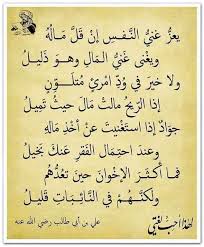 يعزُّ غنيُّ النَّفسِ إنْ قلَّ مالُهُ
ويغنى غَنيُّ المالِ وهوَ ذَليلُ
ولا خيرَ في وِدِّ امرئٍ متلَوِّنٍ
إذا الرّيحُ مالتْ مالَ حيثُ تَميلُ
جوادٌ إذا استغنيتَ عنْ أخْذِ مالِهِ
وعندَ احتمالِ الفقرِ عنكَ بخيلُ
فما أكثرَ الإخوانَ حينَ تعُدُّهُم
ولكنَّهُم في النَّائباتِ قليلُ
علي بن أبي طالب رضي الله عنه